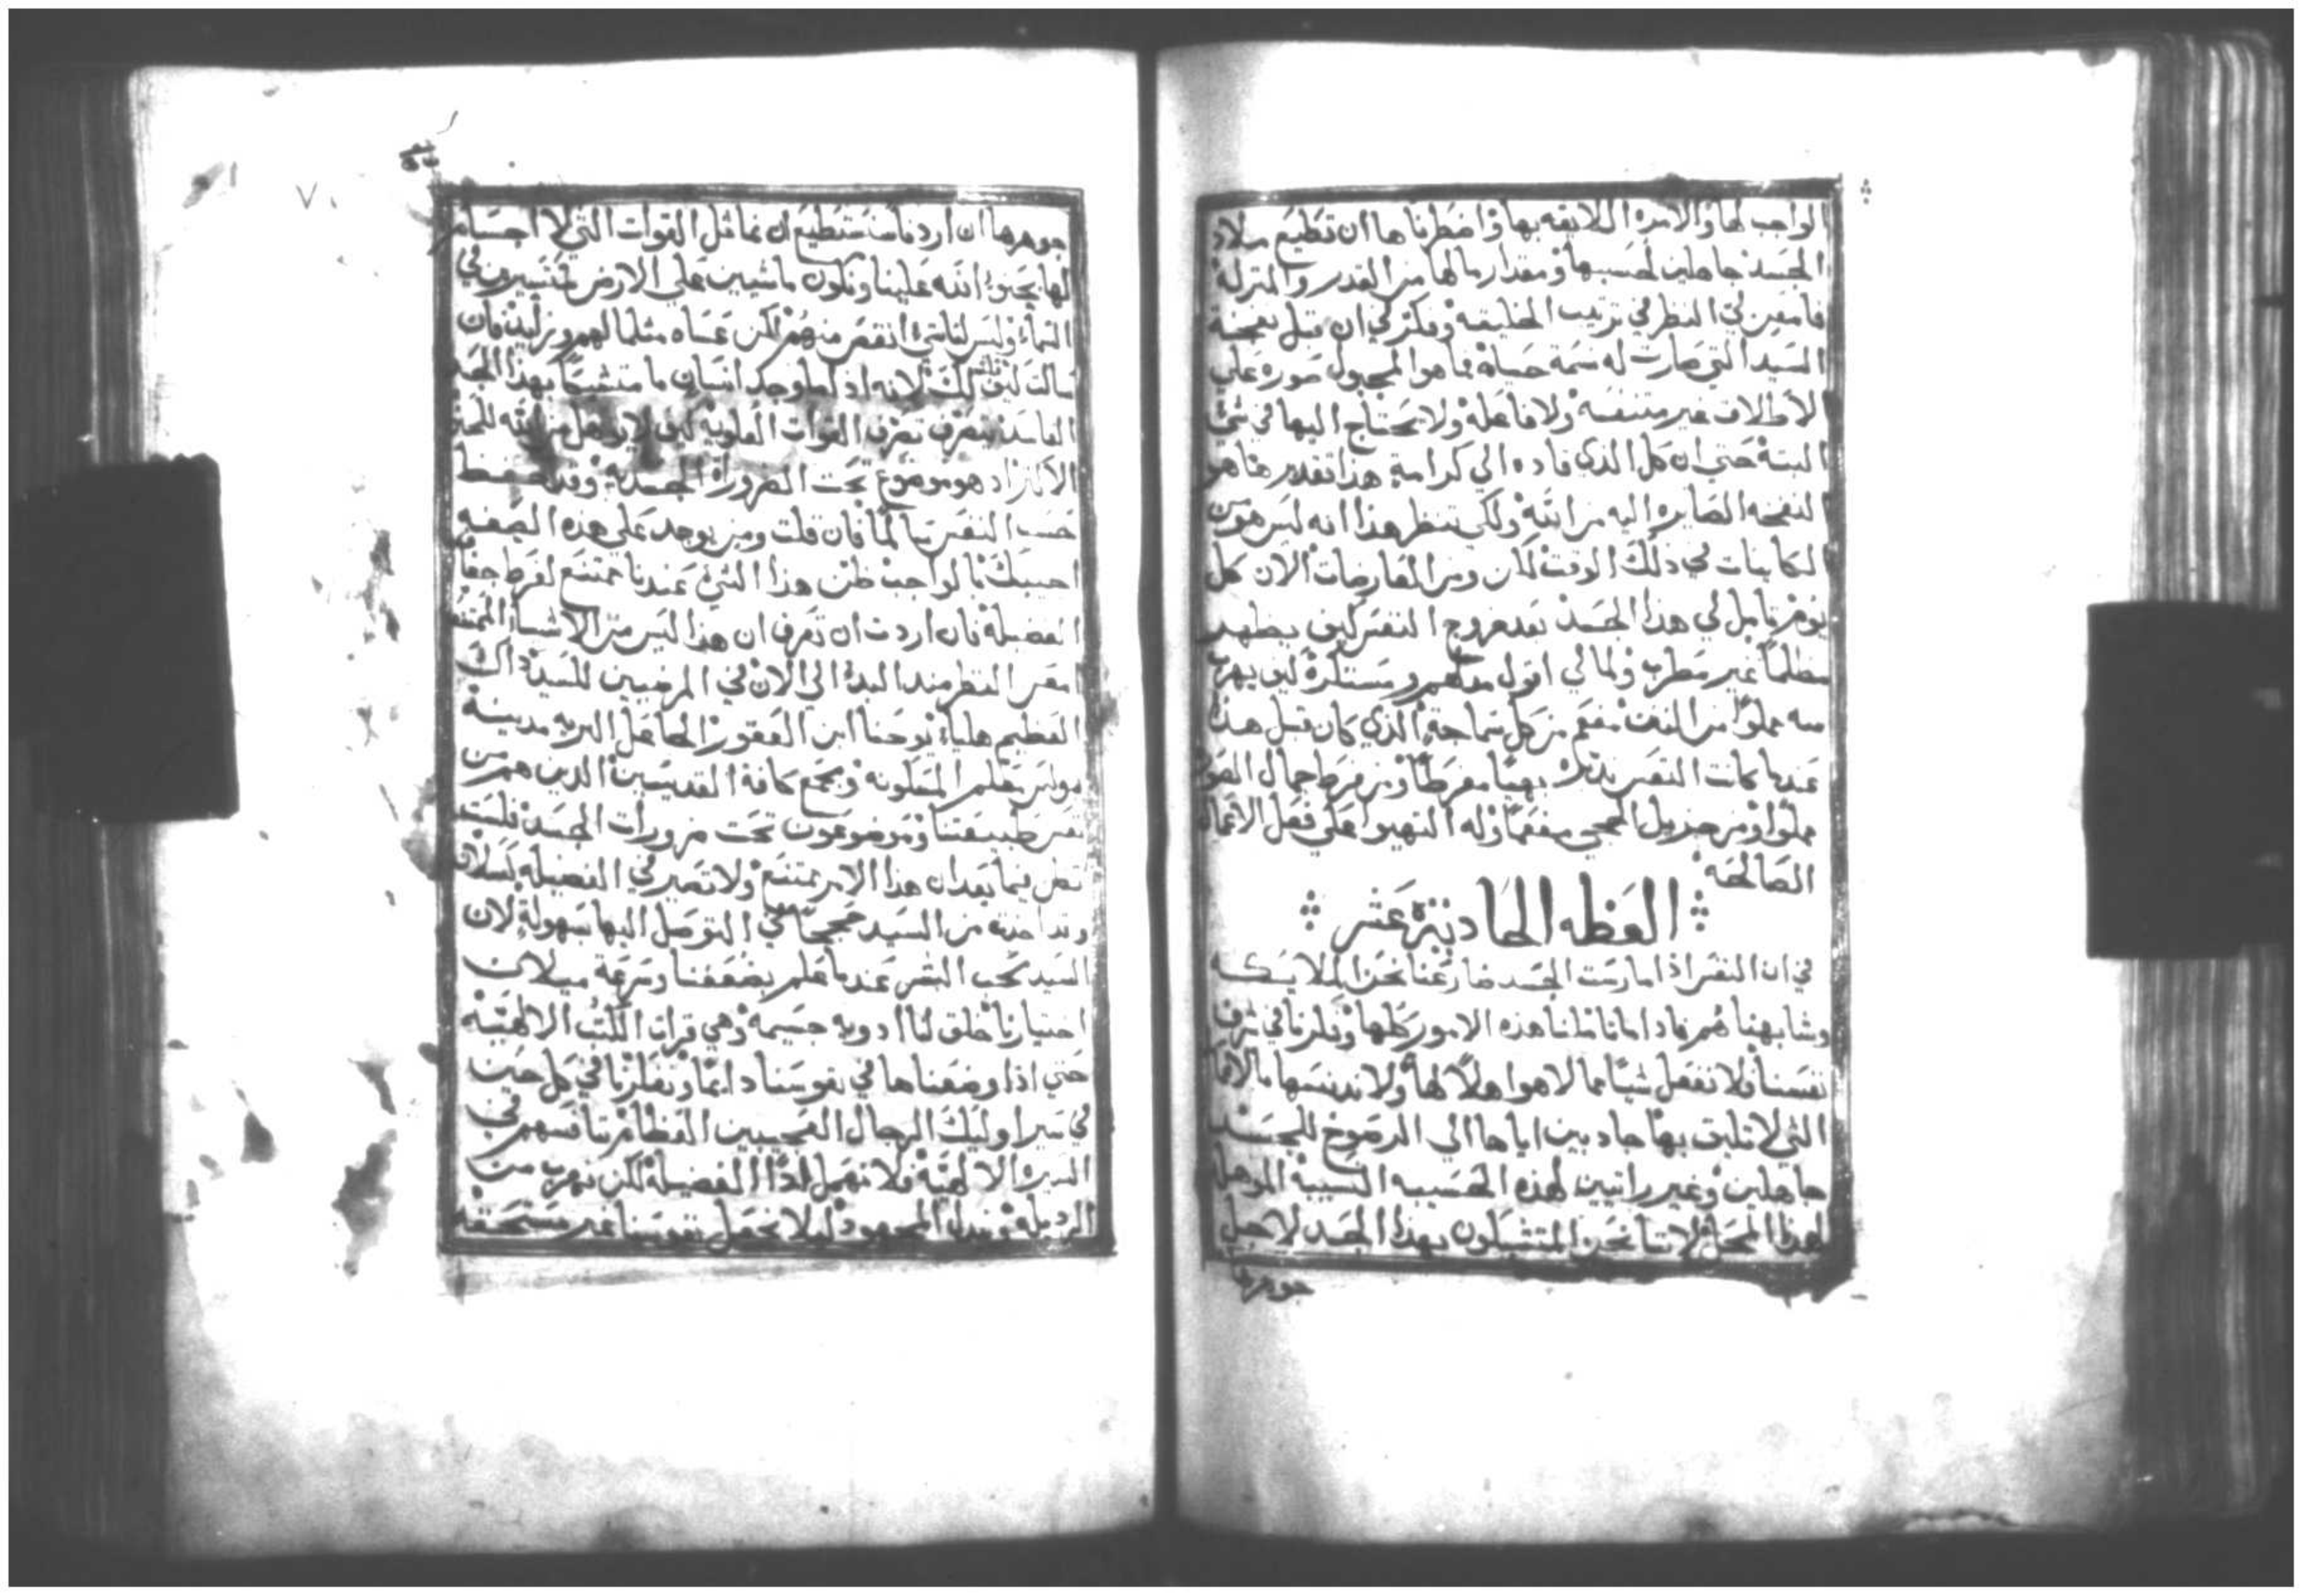 الواجب لها والامره اللايقه بها واضطرناها ان تطيع ميلاد
الجسد جاهلين لحسبها ومقدار ما لها من القدر والمنزله
فامعن لي النظر في ترتيب الخليقه وفكر لي ان قبل نفخة
السيد التي صارت له نسمة حياة فما هو المجبول صوره علي
الاطلاق غير متنفسه ولا فاعله ولا يحتاج اليها في شي
البتة حتي ان كل الذي قاده الي كرامة هذا تقديرها هو
النفخه الصايره اليه من الله ولكي تنظر هذا انه ليس هو من
الكاينات في ذلك الوقت لكن ومن العارضات الان كل
يوم تامل لي هذا الجسد بعد خروج النفس كيف يظهر
مظلما غير مطرب ولما لي اقول مدلهم ومستكره كيف يهرب
منه مملوا من النتن مفعم من كل سماجة الذي كان قبل هذا
عندما كانت النفس تدبره بهيا مفرطا ومن فرط جمال الصور
مملوا ومن جزيل الحجي مفعما وله التهيوا علي فعل الاعمال
الصالحه
العظه الحاديه عشر
في ان النفس اذا مارست الجسد ضارعنا نحن الملايكه
وشابهناهم فاد اما تاملنا هذه الامور كلها وفكرنا في شرف
نفسنا فلا نفعل شيا مما لا هو اهلا لها ولا ندنسها بالافعا
التي لا تليق بها جادبين اياها الي الرضوخ للجسد
جاهلين وغير راتيين لهذه الحسيبه النسيبه الموهله
لهذا المحل لاننا نحن المتشبكون بهذا الجسد لاجل
جوهرها
جوهرها ان اردنا سنستطيع ان نماثل القوات التي لا اجسام
لها بحنوا الله علينا ونكون ماشيين علي الارض كمتسيرون في
السماء وليس لنا شيء انقص منهم لكن عساه مثلما لهم وزايد فان
سالت كيف ذلك لانه اذ كلما وجد انسان ما متشيحا بهذا الجسد
الفاسد يتصرف تصرف القوات العلويه كيف لا يوهل من الله للحنو
الاكثر اد هو موضوع تحت الضرورة الجسديه وقد حفظ
حسب النفس سالما فان قلت ومن يوجد علي هذه الصفه
اجبتك بالواجب ظن هذا الشي عندنا ممتنع لفرط جفا
الفضيله فان اردت ان تعرف ان هذا ليس من الاشياء الممتنعه
امعن النظر مند البدء الي الان في المرضيين للسيد داك
العظيم هلياء يوحنا ابن العقور الجاعل البريه مدينة
بولس معلم المسكونه وجمع كافة القديسين الدين هم من
نفس طبيعتنا وموضوعون تحت ضرورات الجسد فلست
تظن فيما بعد ان هذا الامر ممتنع ولا تصير في الفضيله كسلان
وقد اخدت من السيد حججا في التوصل اليها بسهولة لان
السيد محب البشر عندما علم بضعفنا وسرعة ميلان
اختيارنا خلق لنا ادويه جسيمه وهي قراة الكتب الالهية
حتي اذا وضعناها في نفوسنا دايما وتفكرنا في كل حين
في سير اوليك الرجال العجيبين العظام بنا نسهم في
السيرة الالهية فلا نهمل ادا الفضيله لكن نهرب من
الرديله ونبدل المجهود ليلا نجعل نفوسنا غير مستحقه